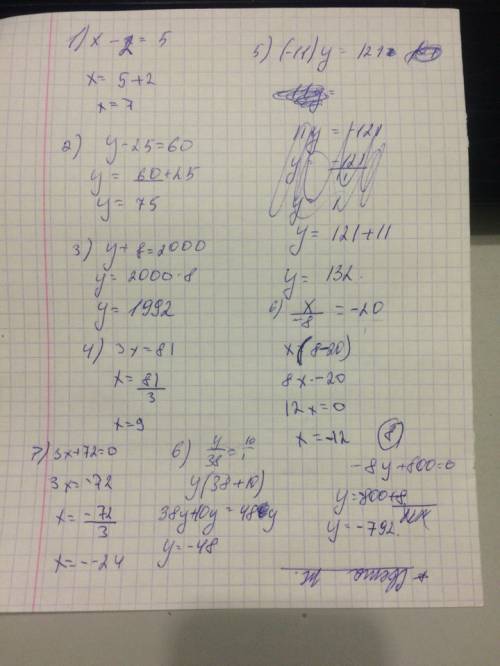 1) x - 2 = 5
x = 5+2
x = 7
2) y-25=60
y = 60+25
y = 75
3) y+8=2000
y = 2000-8
y = 1992
4) 3x=81
x = 81/3
x=9
5) (-11) y = 121
11y = -121
y = -121/11
y =
y = 121+11
y = 132.
6) x/-8 = -20
x (8-20)
8x - 20
12x=0
x = -12
7) 3x+72=0
3x = -72
x = -72/3
x = --24
6) y/38 = 10/1
y(38+10)
38y+10y = 48y
y = -48
8
-8y+800=0
y=800+8
y=-792.